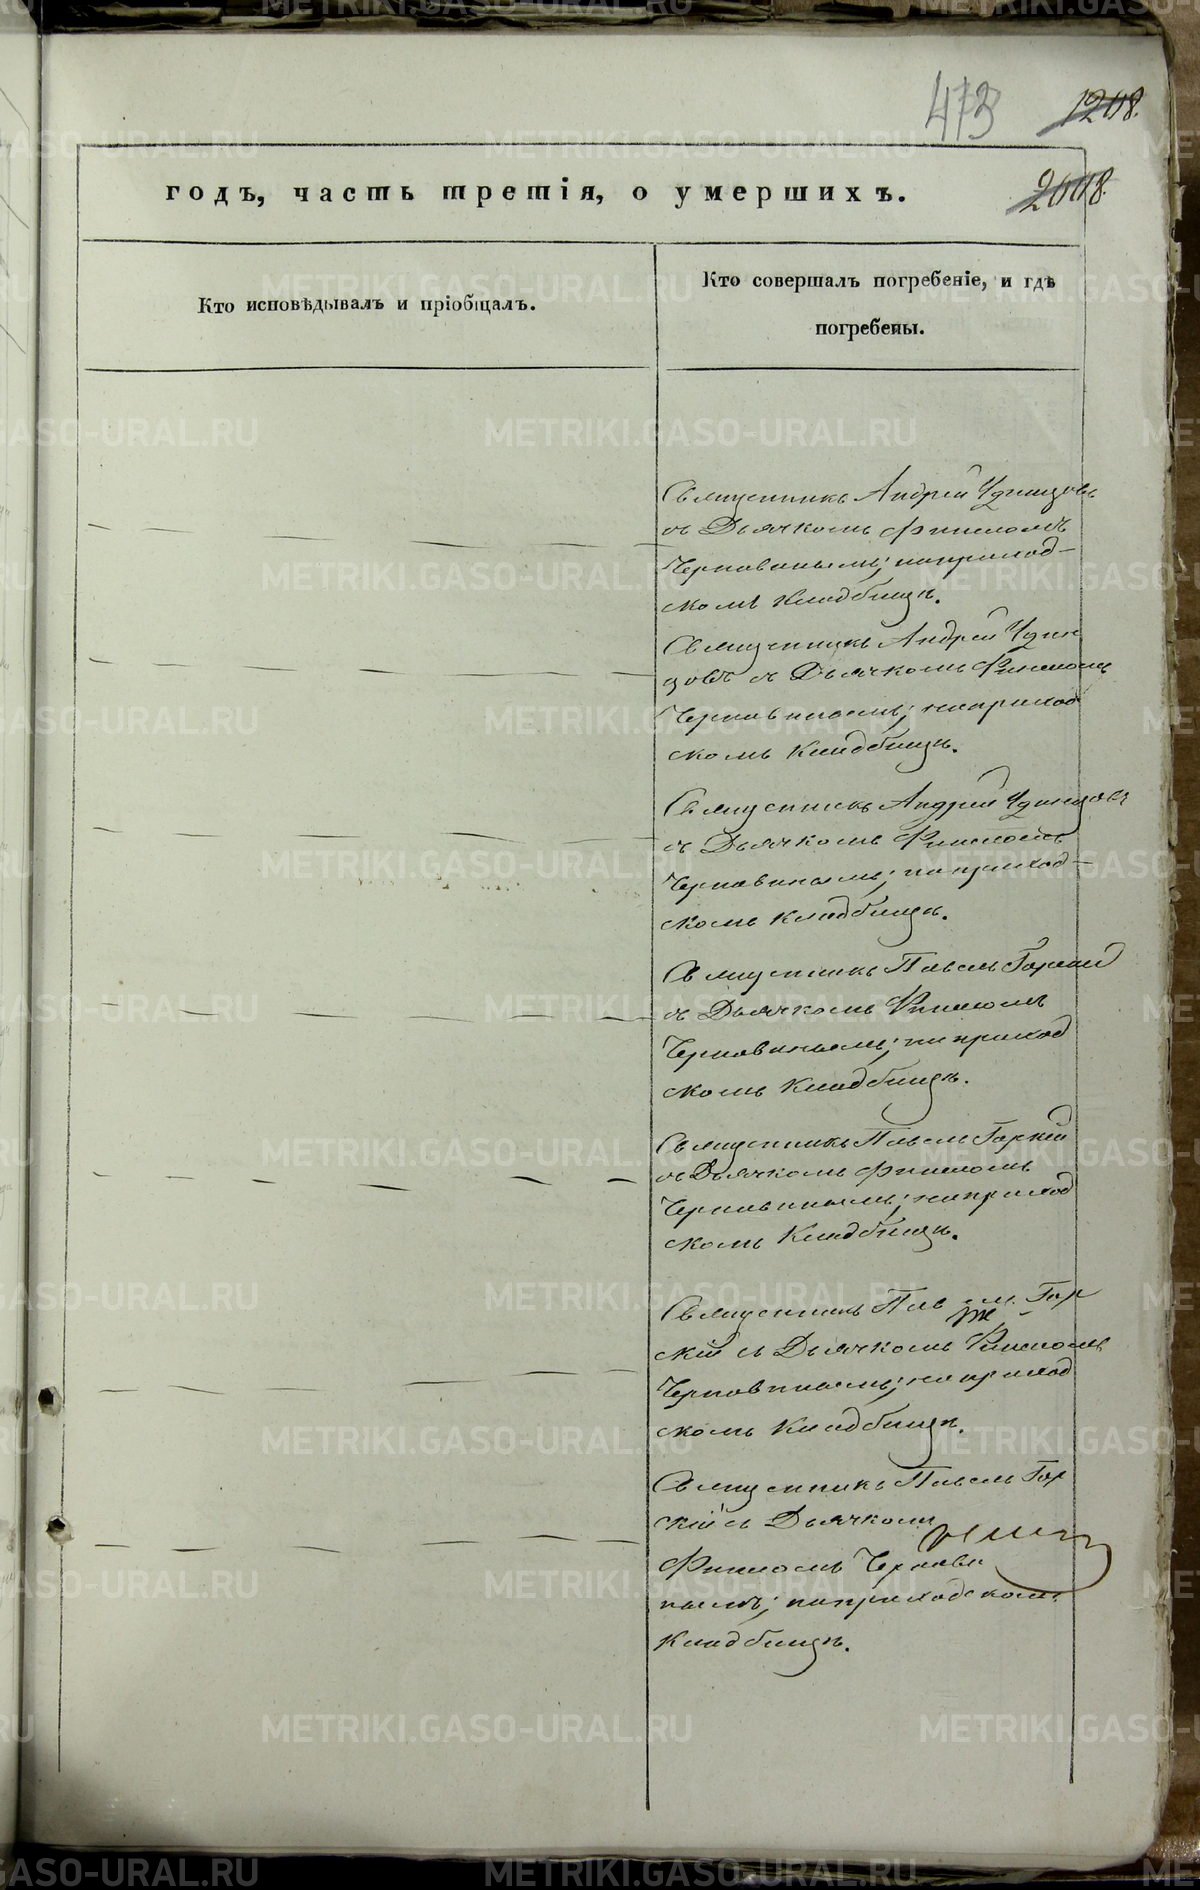 473 1208.
годъ, часть третія, о умершихъ.
2008
Кто исповѣдывалъ и пріобщалъ.
Кто совершалъ погребеніе, и гдѣ
погребены.
Священникъ Андрей Удинцовъ
съ Дьячкомъ Филиломъ
Чернавинымъ; наприход-
скомъ Кладбищѣ.
Священникъ Андрей Удин
цовъ съ Дьячкомъ
Чернавинымъ; наприход
скомъ Кладбищѣ.
Священникъ Андрей Удинцовъ
съ Дьячкомъ
Чернавинымъ; наприход-
скомъ Кладбищѣ.
Священникъ Павелъ Горкій
съ Дьячкомъ
Чернавинымъ; наприход
скомъ Кладбищѣ.
Священникъ Павелъ Горкій
съ Дьячкомъ
Чернавинымъ; наприход
скомъ Кладбищѣ.
Священникъ Пав елъ Гор
скій съ Дьячкомъ
Чернавинымъ; наприход
скомъ Кладбищѣ.
Священникъ Павелъ Гор
скій съ Дьячкомъ
Чернави
нымъ; наприходскомъ
Кладбищѣ.
METRIKI.GASO-URAL.RU